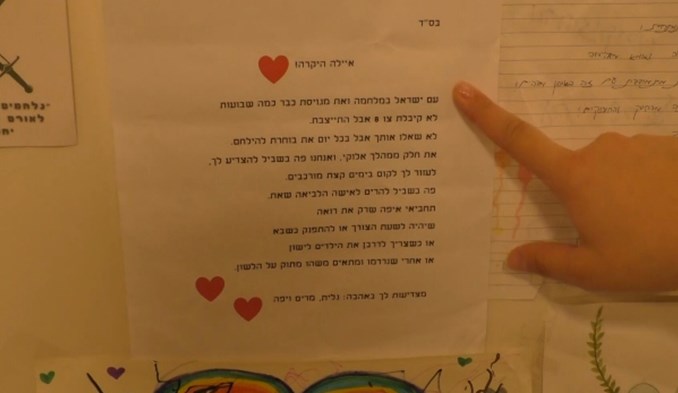 בס"ד
איילה היקרה!
עם ישראל במלחמה ואת מגויסת כבר כמה שבועות
לא קיבלת צו 8 אבל התייצבת.
לא שאלו אותך אבל בכל יום את בוחרת להילחם.
את חלק ממהלך אלוקי, ואנחנו פה בשביל להצדיע לך,
לעזור לך לקום בימים קצת מורכבים.
פה בשביל להרים לאישה הלביאה שאת.
תחביאי איפה שרק את רואה
שיהיה לשעת הצורך או להתפנק כשבא
או כשצריך לדרבן את הילדים לישון
או אחרי שנרדמו ומתאים משהו מתוק על הלשון.
מצדיעות לך באהבה: גלית, מרים ויפה
לאורם